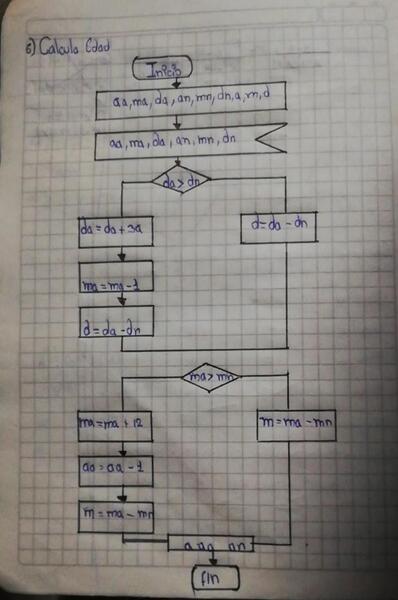 6) Calcula Edad
Inicio
aa, ma, da, an, mn, dn, a, m, d
aa, ma, da, an, mn, dn
da > dn
da = da + 30
d = da - dn
ma = ma - 1
d = da - dn
ma > mn
ma = ma + 12
m = ma - mn
aa = aa - 1
m = ma - mn
fin